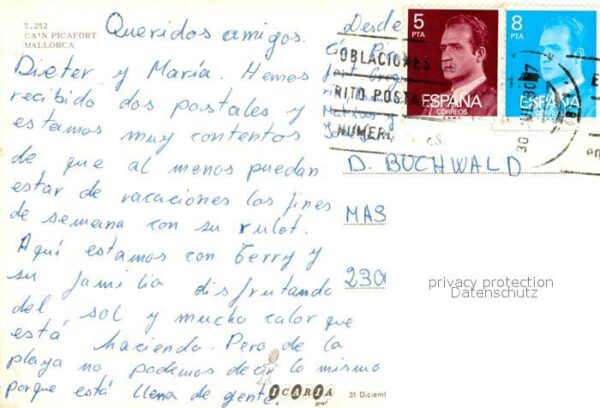 7.252
CA'N PICAFORT
MALLORCA
Queridos amigos.
Dieter y María. Hemos
recibido dos postales y
estamos muy contentos
de que al menos puedan
estar de vacaciones los fines
de semana con su rulot.
Aquí estamos con Gerry y
su familia disfrutando
del sol y mucho calor que
está haciendo. Pero de la
playa no podemos decir lo mismo
porque está llena de gente.
Desde
5
PTA
ESPAÑA
CORREOS
8
PTA
ESPAÑA
OBLACIONES
RITO POSTA
NUMER
30
D. BUCHWALD
MAS
230
privacy protection
Datenschutz
ICARIA
graf
31 Diciem